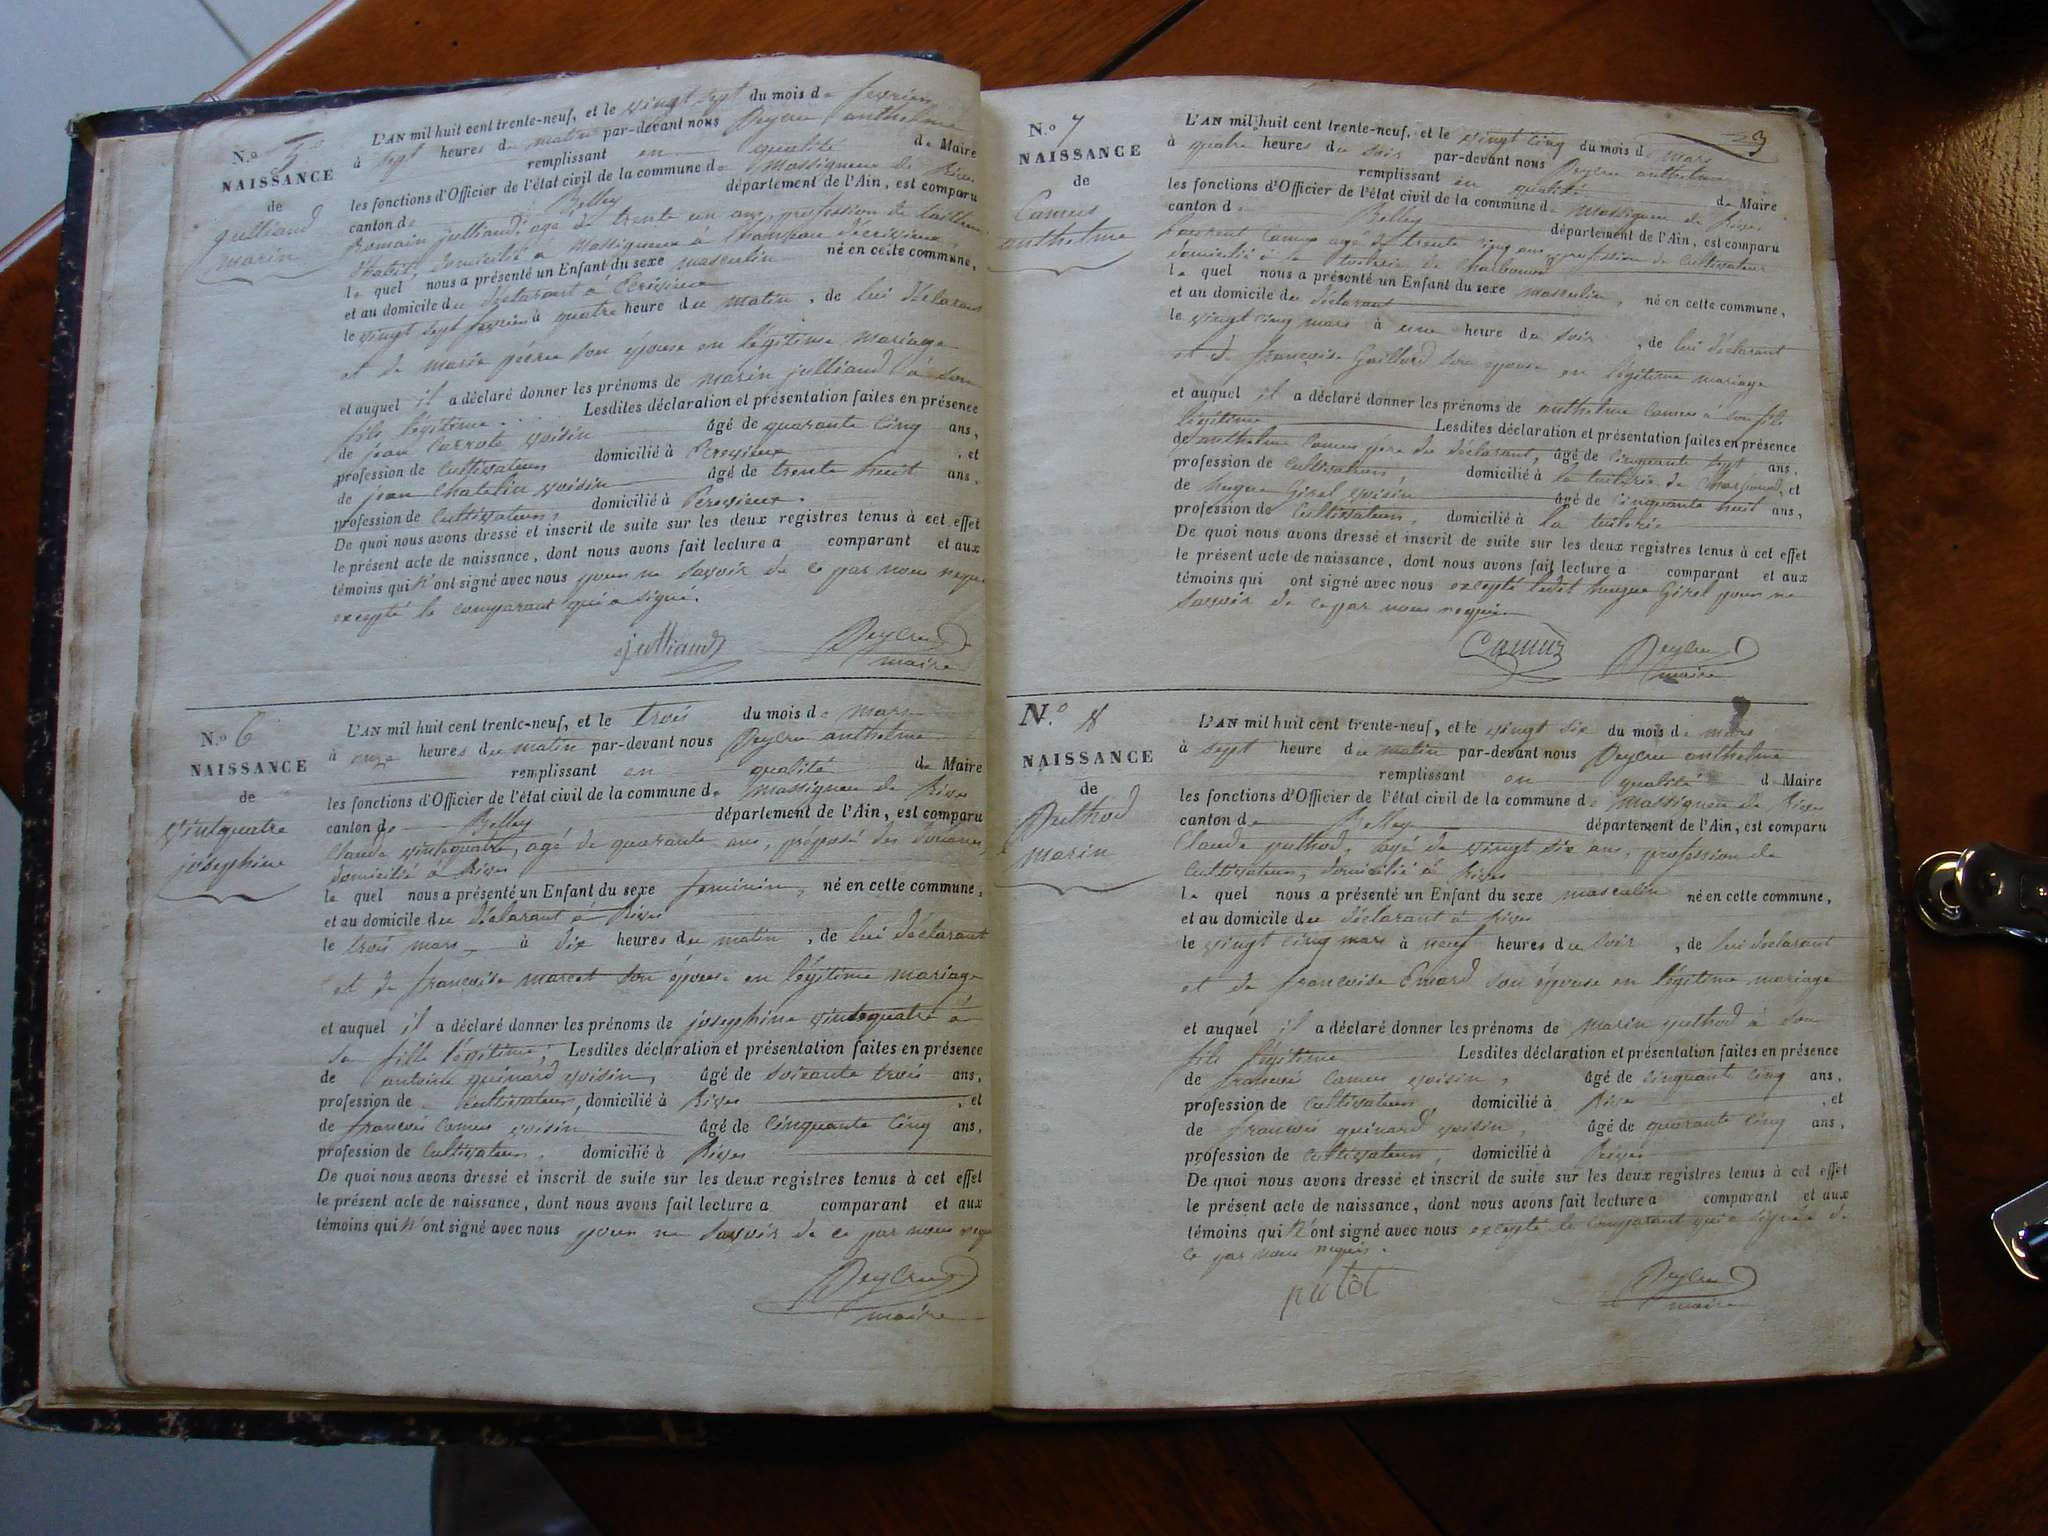 N.o 5
NAISSANCE
de
julliand
marin
L'AN mil huit cent trente-neuf, et le vingt sept du mois de fevrier
à sept heures du matin par-devant nous Peycru anthelme
remplissant en qualité de Maire
les fonctions d'Officier de l'état civil de la commune de Massigneux de Rives
canton de Belley département de l'Ain, est comparu
Romain julliand, agé de trente un ans, profession de tailleur
d'habit, domicilié à Massigneux à
le quel nous a présenté un Enfant du sexe masculin né en cette commune,
et au domicile du déclarant à
le vingt sept fevrier à quatre heure du matin, de lui déclarant
et de marie son épouse en légitime mariage
et auquel il a déclaré donner les prénoms de marin julliand à son
fils légitime. Lesdites déclaration et présentation faites en présence
de jean voisin âgé de quarante cinq ans,
profession de cultivateur domicilié à , et
de jean chatelin voisin âgé de trente huit ans,
profession de cultivateur, domicilié à
De quoi nous avons dressé et inscrit de suite sur les deux registres tenus à cet effet
le présent acte de naissance, dont nous avons fait lecture a comparant et aux
témoins qui n'ont signé avec nous pour ne savoir de ce par nous requi
excepté le comparant qui a signé.
julliand Peycru
maire
N.o 6
NAISSANCE
de
vintquatre
joséphine
L'AN mil huit cent trente-neuf, et le trois du mois de mars
à onze heures du matin par-devant nous Peycru anthelme
remplissant en qualité de Maire
les fonctions d'Officier de l'état civil de la commune de Massigneu de Rives
canton de Belley département de l'Ain, est comparu
Claude vintquatre, agé de quarante ans, préposé des douanes,
domicilié à Rives
le quel nous a présenté un Enfant du sexe feminin, né en cette commune,
et au domicile du déclarant à Rives
le trois mars à dix heures du matin, de lui déclarant
et de francoise marcet son épouse en légitime mariage
et auquel il a déclaré donner les prénoms de josephine vintquatre à
sa fille légitime; Lesdites déclaration et présentation faites en présence
de antoine guinard voisin, âgé de soixante trois ans,
profession de cultivateur, domicilié à Rives , et
de francois camus voisin âgé de cinquante cinq ans,
profession de cultivateur, domicilié à Rives
De quoi nous avons dressé et inscrit de suite sur les deux registres tenus à cet effet
le présent acte de naissance, dont nous avons fait lecture a comparant et aux
témoins qui n'ont signé avec nous pour ne savoir de ce par nous requi
Peycru
maire
23
N.o 7
NAISSANCE
de
Camus
anthelme
L'AN mil huit cent trente-neuf, et le vingt cinq du mois de mars
à quatre heures du soir par-devant nous Peycru anthelme
remplissant en qualité de Maire
les fonctions d'Officier de l'état civil de la commune de Massigneu de Rives
canton de Belley département de l'Ain, est comparu
Laurent Camus agé de trente cinq ans, profession de cultivateur
domicilié à la tuilerie de
le quel nous a présenté un Enfant du sexe masculin, né en cette commune,
et au domicile du déclarant
le vingt cinq mars à une heure du soir, de lui déclarant
et de françoise Gaillard son epouse en légitime mariage
et auquel il a déclaré donner les prénoms de anthelme Camus à son fils
légitime Lesdites déclaration et présentation faites en présence
de anthelme Camus père du déclarant, âgé de cinquante sept ans,
profession de cultivateur domicilié à la tuilerie de , et
de hugue Girel voisin âgé de cinquante huit ans,
profession de cultivateur, domicilié à la tuilerie
De quoi nous avons dressé et inscrit de suite sur les deux registres tenus à cet effet
le présent acte de naissance, dont nous avons fait lecture a comparant et aux
témoins qui ont signé avec nous excepté ledit hugue Girel pour ne
savoir de ce par nous requi
Camus Peycru
maire
N.o 8
NAISSANCE
de
Puthod
marin
L'AN mil huit cent trente-neuf, et le vingt six du mois de mars
à sept heure du matin par-devant nous Peycru anthelme
remplissant en qualité de Maire
les fonctions d'Officier de l'état civil de la commune de Massigneu de Rives
canton de Belley département de l'Ain, est comparu
Claude puthod, agé de vingt six ans, profession de
cultivateur, domicilié à Rives
le quel nous a présenté un Enfant du sexe masculin né en cette commune,
et au domicile du déclarant à Rives
le vingt cinq mars à neuf heures du soir, de lui déclarant
et de francoise Emard son épouse en légitime mariage
et auquel il a déclaré donner les prénoms de marin puthod à son
fils légitime Lesdites déclaration et présentation faites en présence
de francois Camus voisin, âgé de cinquante cinq ans,
profession de cultivateur domicilié à Rives , et
de francois guinard voisin, âgé de quarante cinq ans,
profession de cultivateur, domicilié à Rives
De quoi nous avons dressé et inscrit de suite sur les deux registres tenus à cet effet
le présent acte de naissance, dont nous avons fait lecture a comparant et aux
témoins qui n'ont signé avec nous excepté le comparant qui a signé de
ce par nous requis.
putot Peycru
maire